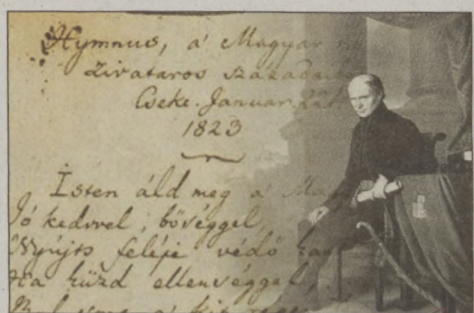 Hymnus, a' Magyar
zivataros
Cseke. Januar. 22
1823
Isten áld meg a' Magyart
Jó kedvvel, bőséggel,
Nyújts feléje védő
Ha küzd ellenséggel,